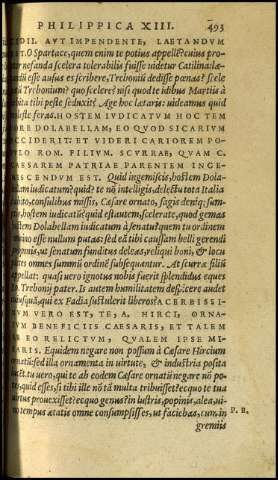 PHILIPPICA XIII. 493
CIDII. AVT IMPENDENTE, LAETANDVM
T. O Spartace, quem enim te potius appellē? cuius pro=
ter nefanda scelera tolerabilis fuisse uidetur Catilina. læ=
andū esse ausus es scribere, Trebonii dedisse pœnas? scele
ũ Trebonium? quo scelere? nisi quod te idibus Martiis à
ebita tibi peste seduxit? Age hoc lætaris: uideamus quid
moleste feras. HOSTEM IVDICATVM HOC TEM
ORE DOLABELLAM; EO QVOD SICARIVM
CCIDERIT: ET VIDERI CARIOREM PO=
VLO ROM. FILIVM. SCVRRAE, QVAM C.
AESAREM PATRIAE PARENTEM INGE=
ISCENDVM EST. Quid ingemiscis, hostem Dola
ellam iudicatum? quid? te nō intelligis, delectu tota Italia
abito, consulibus missis, Cæsare ornato, sagis deniq; sum=
tis, hostem iudicatũ? quid est autem, scelerate, quod gemas
hostem Dolabellam iudicatum à senatu? quem tu ordinem
omnino esse nullum putas: sed eā tibi caussam belli gerendi
oponis, ut senatum funditus deleas, reliqui boni, & locu
letes omnes summũ ordinē subsequantur. At scurræ filiũ
appellat: quasi uero ignotus nobis fuerit splendidus eques
ro. Trebonij pater. Is autem humilitatem despicere audet
cuiusquā, qui ex Fadia sustulerit liberos? ACERBISSI=
MVM VERO EST, TE, A. HIRCI, ORNA=
TVM BENEFICIIS CAESARIS, ET TALEM
AB EO RELICTVM, QVALEM IPSE MI=
RARIS. Equidem negare non possum à Cæsare Hircium
ornatũ: sed illa ornamenta in uirtute, & industria posita
lucēt. tu uero, qui te ab eodem Cæsare ornatũ negare nō po=
tes, quid esses, si tibi ille nō tā multa tribuisset? ecquo te tua
uirtus prouexisset? ecquo genus? in lustris, popinis, alea, ui=
no tempus ætatis omne consumpsisses, ut faciebas, cum in
P. B.
gremiis